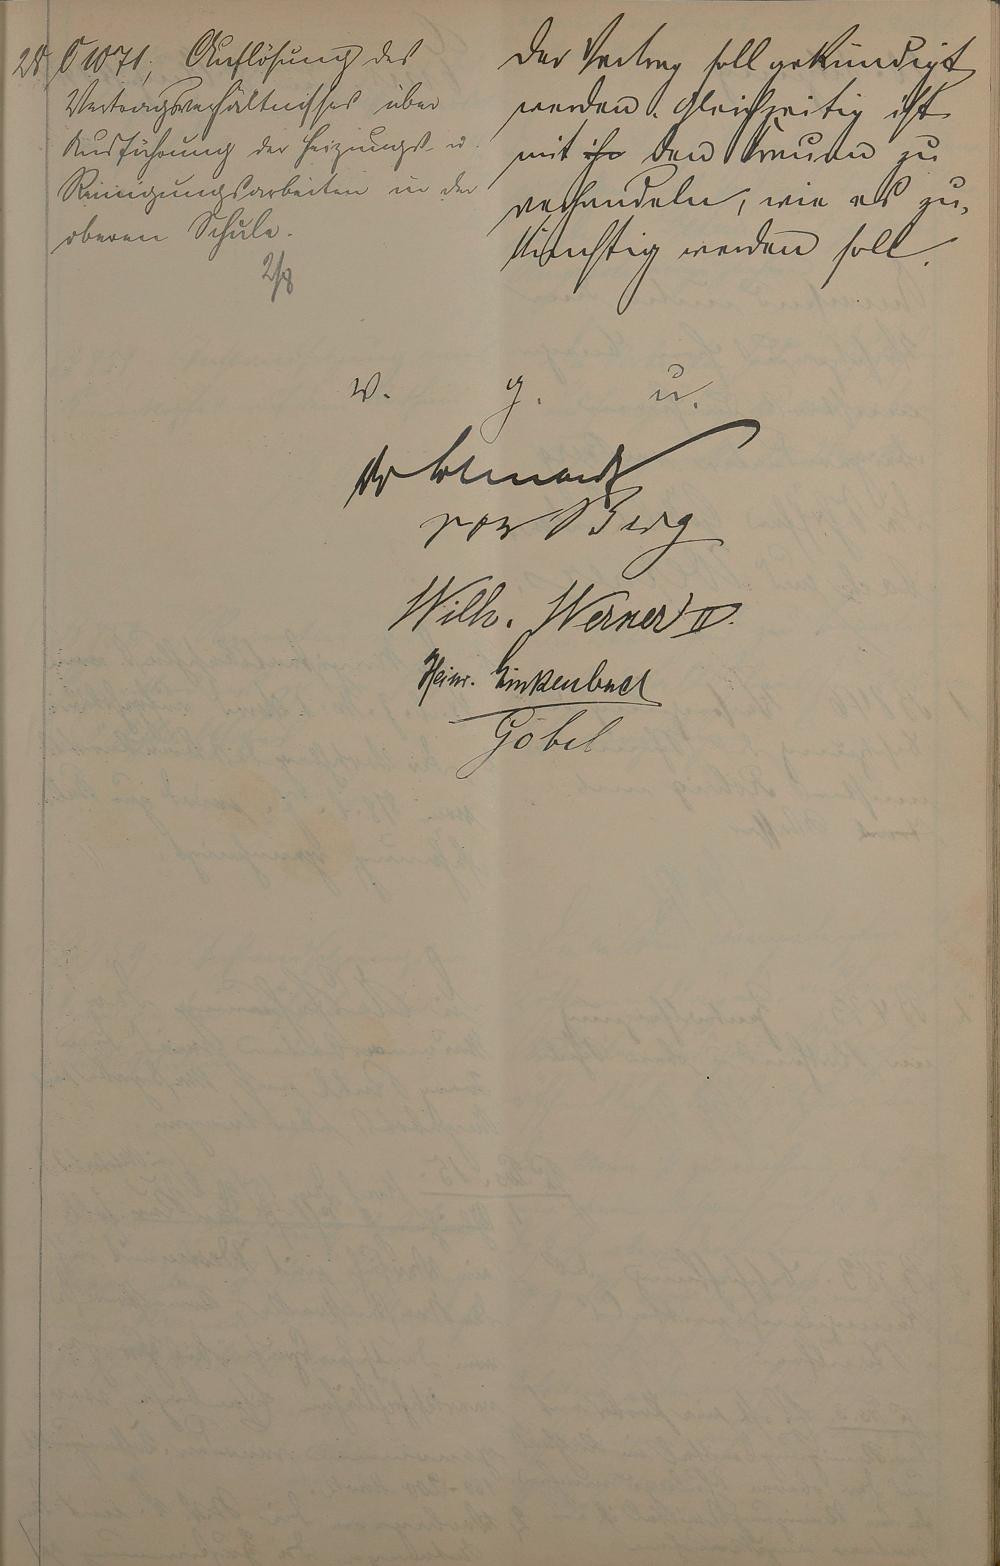 28, C 1071, Auflösung des
Vertragsverhältnisses über
Ausführung der Heizungs- u.
Reinigungsarbeiten in der
oberen Schule.
2/8
Der Vertrag soll gekündigt
werden. Gleichzeitig ist
mit ihr den Frauen zu
verhandeln, wie es zu-
künftig werden soll.
v. g. u.
von Berg
Wilh. Werner II.
Heinr. Linkenbach
Göbel